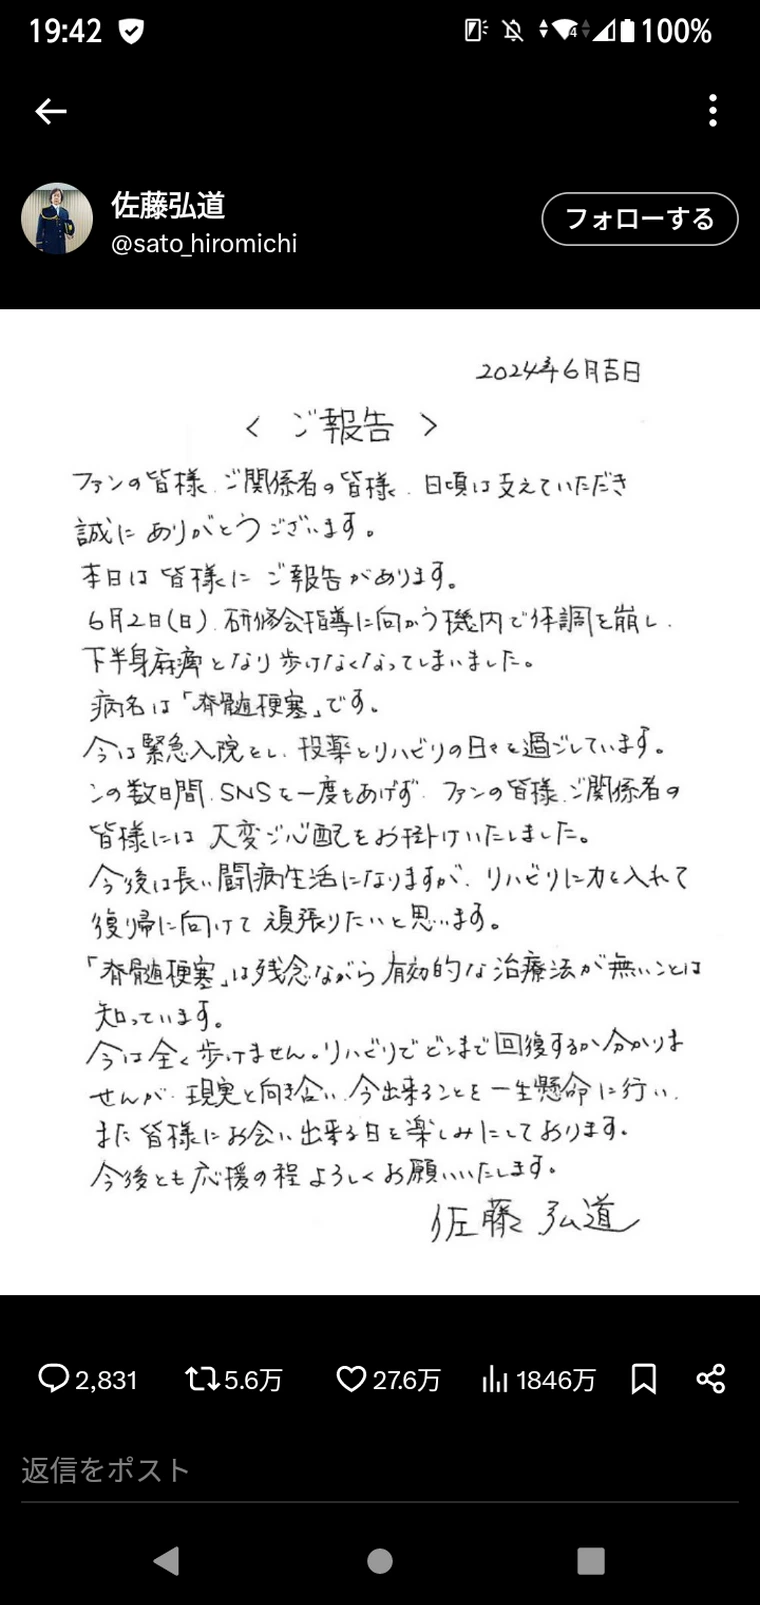 19:42
4
100%
佐藤弘道
@sato_hiromichi
フォローする
2024年6月吉日
< ご報告 >
ファンの皆様、ご関係者の皆様、日頃は支えていただき
誠にありがとうございます。
本日は皆様にご報告があります。
6月2日(日)、研修会指導に向かう機内で体調を崩し、
下半身麻痺となり歩けなくなってしまいました。
病名は「脊髄梗塞」です。
今は緊急入院をし、投薬とリハビリの日々を過ごしています。
この数日間、SNSを一度もあげず、ファンの皆様、ご関係者の
皆様には大変ご心配をお掛けいたしました。
今後は長い闘病生活になりますが、リハビリに力を入れて
復帰に向けて頑張りたいと思います。
「脊髄梗塞」は残念ながら有効的な治療法が無いことは
知っています。
今は全く歩けません。リハビリでどこまで回復するか分かりま
せんが、現実と向き合い、今出来ることを一生懸命に行い、
また皆様にお会い出来る日を楽しみにしております。
今後とも応援の程よろしくお願いいたします。
佐藤弘道
2,831
5.6万
27.6万
1846万
返信をポスト